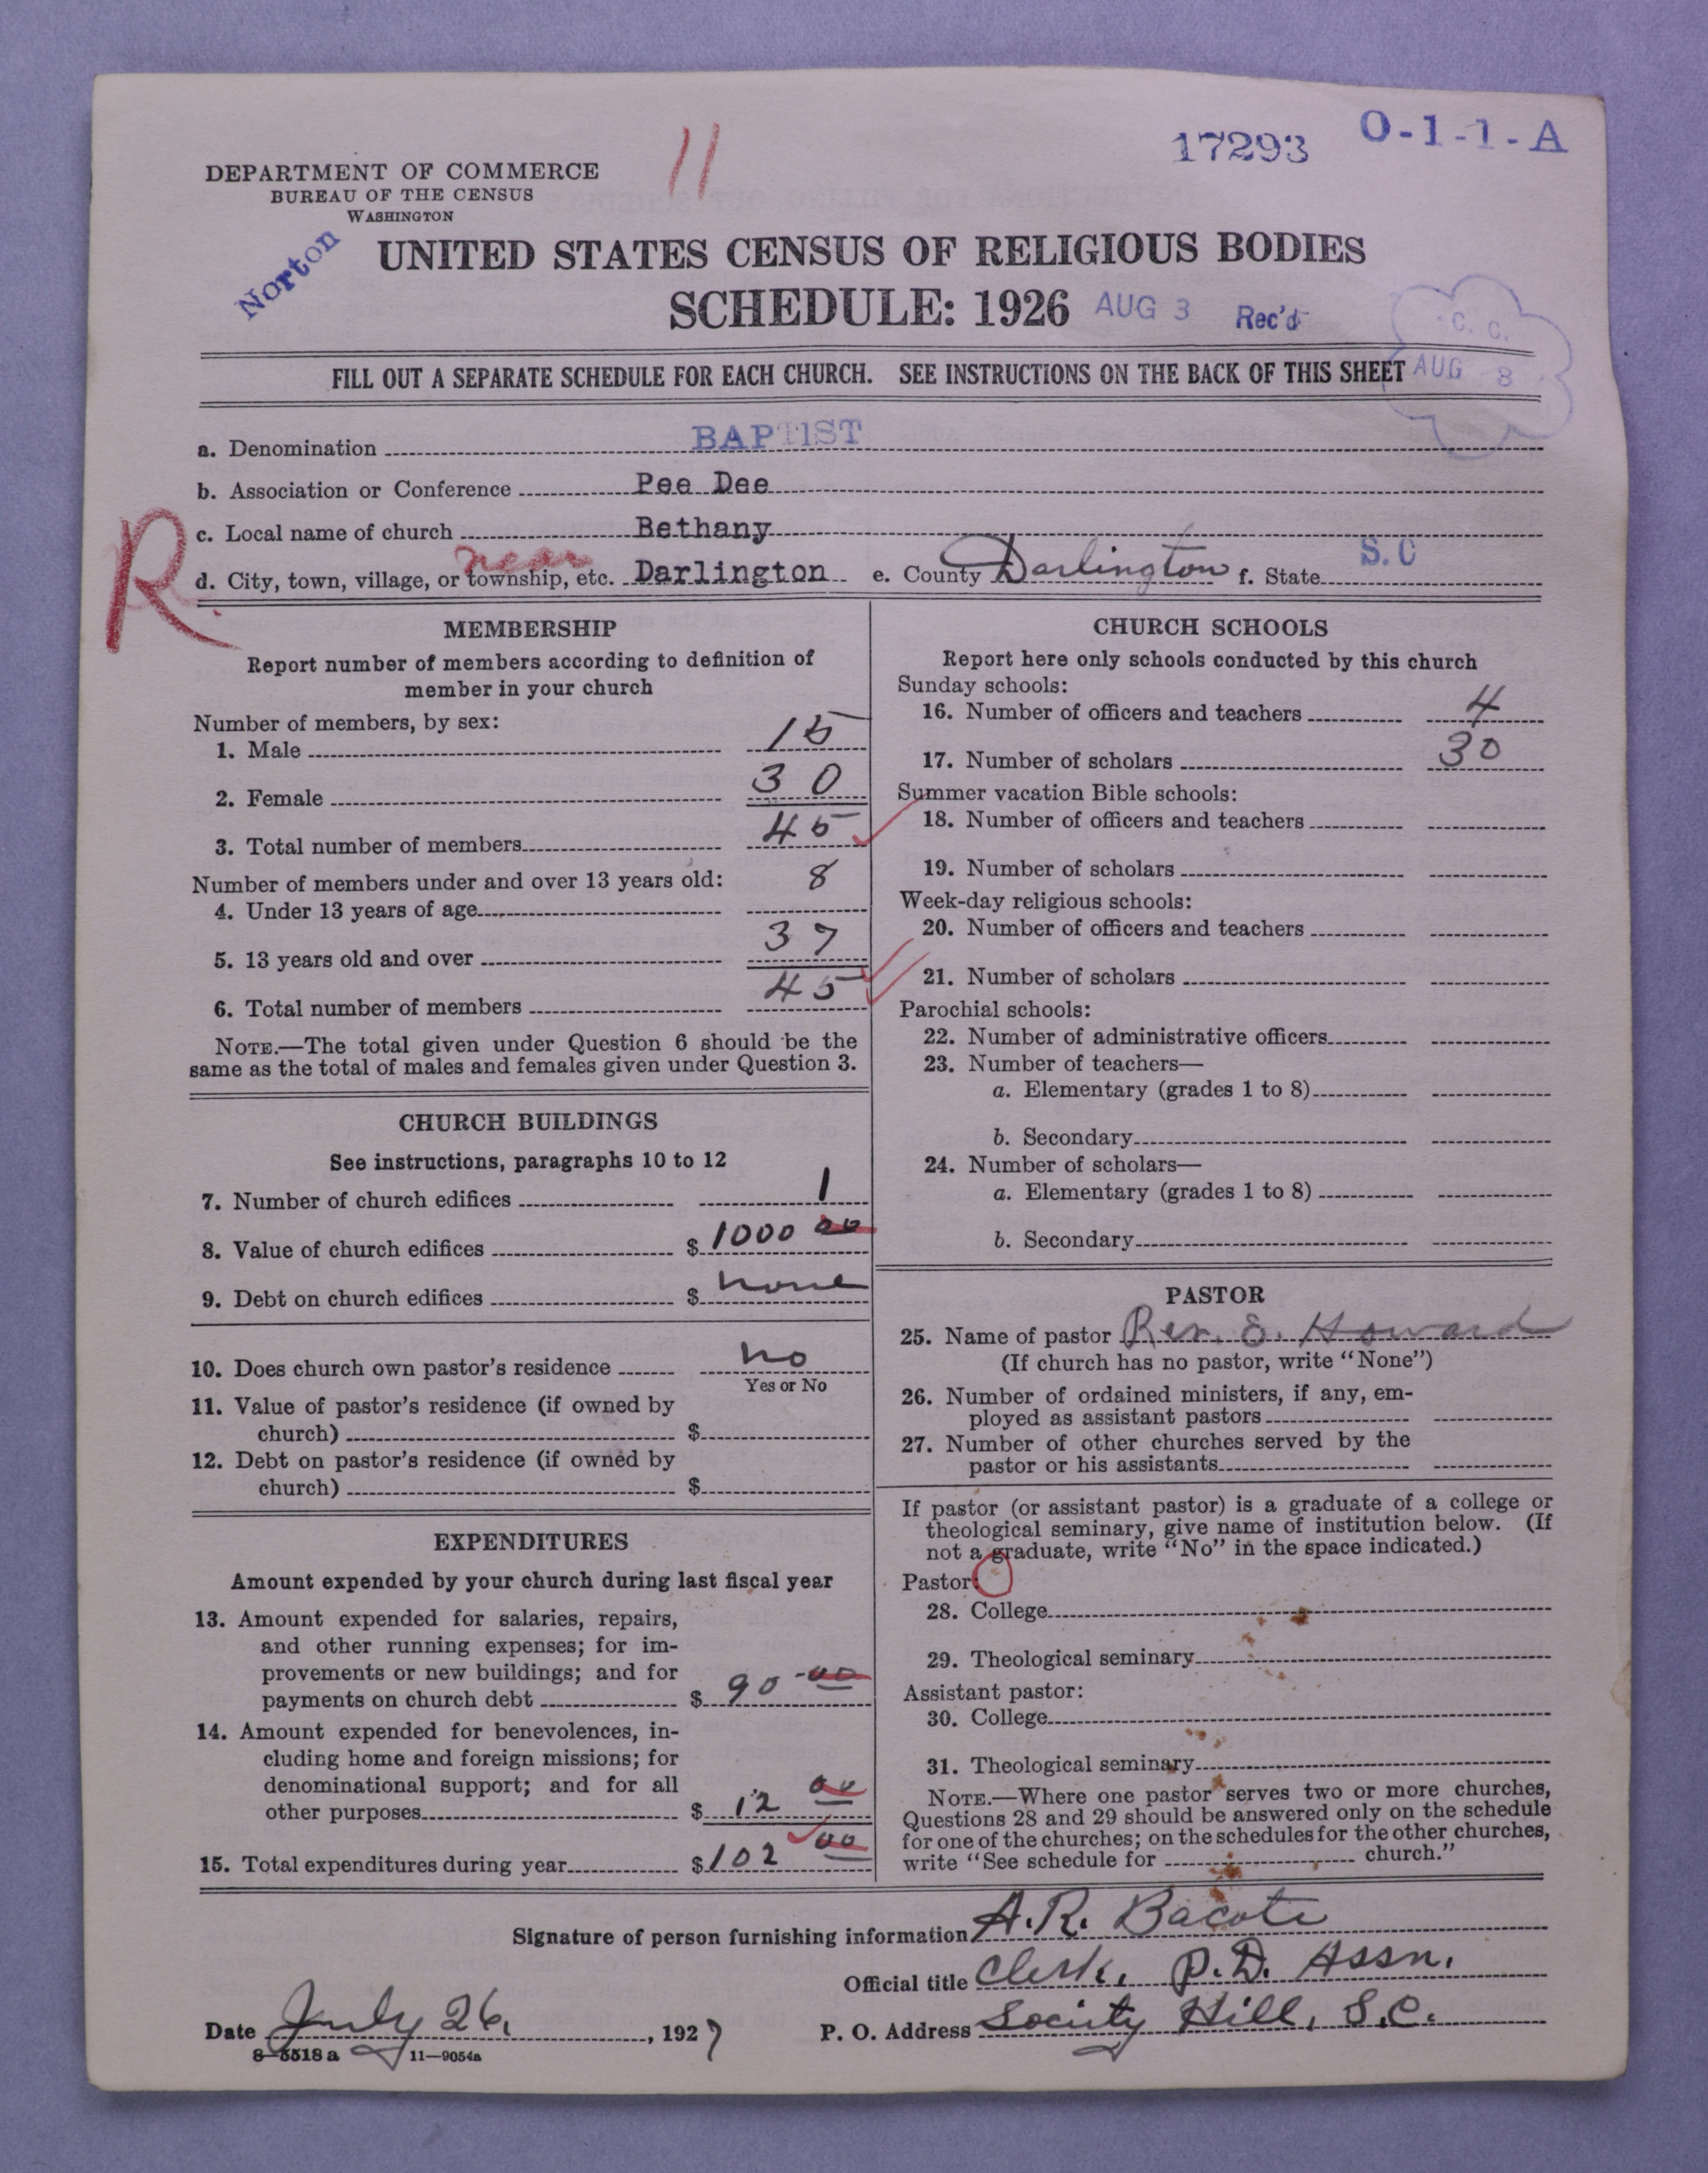 17293 O-1-1-A
11
DEPARTMENT OF COMMERCE
BUREAU OF THE CENSUS
WASHINGTON
Norton
UNITED STATES CENSUS OF RELIGIOUS BODIES
SCHEDULE: 1926 AUG 3 Rec'd
C. C.
AUG 8
FILL OUT A SEPARATE SCHEDULE FOR EACH CHURCH. SEE INSTRUCTIONS ON THE BACK OF THIS SHEET
a. Denomination BAPTIST
b. Association or Conference Pee Dee
c. Local name of church Bethany
R
near
d. City, town, village, or township, etc. Darlington e. County Darlington f. State S.C
MEMBERSHIP
Report number of members according to definition of
member in your church
Number of members, by sex:
1. Male 15
2. Female 30
3. Total number of members 45
Number of members under and over 13 years old:
4. Under 13 years of age 8
5. 13 years old and over 37
6. Total number of members 45
NOTE.—The total given under Question 6 should be the
same as the total of males and females given under Question 3.
CHURCH BUILDINGS
See instructions, paragraphs 10 to 12
7. Number of church edifices 1
8. Value of church edifices $ 1000 00
9. Debt on church edifices $ none
10. Does church own pastor's residence no
Yes or No
11. Value of pastor's residence (if owned by
church) $
12. Debt on pastor's residence (if owned by
church) $
EXPENDITURES
Amount expended by your church during last fiscal year
13. Amount expended for salaries, repairs,
and other running expenses; for im-
provements or new buildings; and for
payments on church debt $ 90-00
14. Amount expended for benevolences, in-
cluding home and foreign missions; for
denominational support; and for all
other purposes $ 12 00
15. Total expenditures during year $ 102 00
CHURCH SCHOOLS
Report here only schools conducted by this church
Sunday schools:
16. Number of officers and teachers 4
17. Number of scholars 30
Summer vacation Bible schools:
18. Number of officers and teachers
19. Number of scholars
Week-day religious schools:
20. Number of officers and teachers
21. Number of scholars
Parochial schools:
22. Number of administrative officers
23. Number of teachers—
a. Elementary (grades 1 to 8)
b. Secondary
24. Number of scholars—
a. Elementary (grades 1 to 8)
b. Secondary
PASTOR
25. Name of pastor Rev. E. Howard
(If church has no pastor, write "None")
26. Number of ordained ministers, if any, em-
ployed as assistant pastors
27. Number of other churches served by the
pastor or his assistants
If pastor (or assistant pastor) is a graduate of a college or
theological seminary, give name of institution below. (If
not a graduate, write "No" in the space indicated.)
Pastor:
28. College
29. Theological seminary
Assistant pastor:
30. College
31. Theological seminary
NOTE.—Where one pastor serves two or more churches,
Questions 28 and 29 should be answered only on the schedule
for one of the churches; on the schedules for the other churches,
write "See schedule for church."
Signature of person furnishing information A.R. Bacote
Official title Clerk, P.D. Assn.
Date July 26, 1927 P. O. Address Society Hill, S.C.
8-5518 a 11—9054a